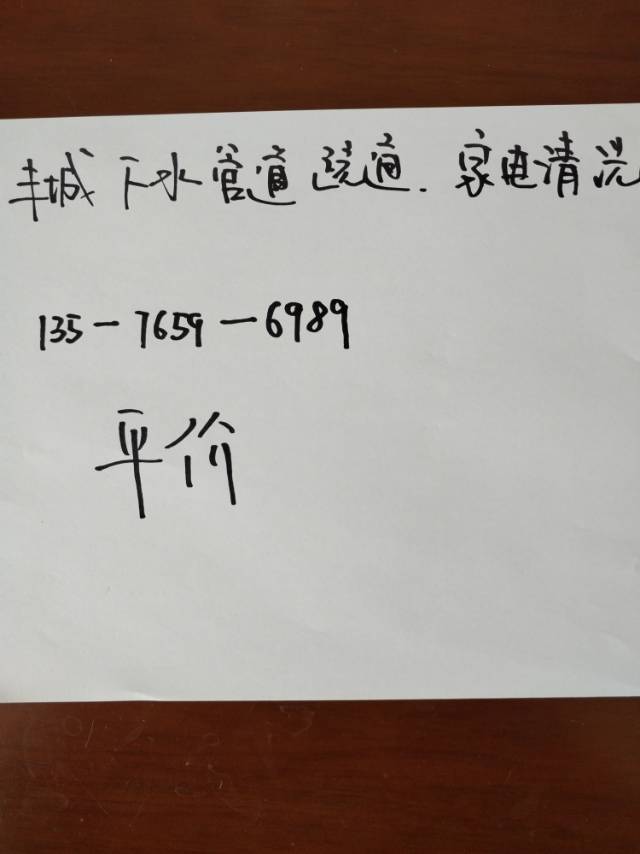 丰城下水管道疏通.家电清洗
135-7659-6989
平价